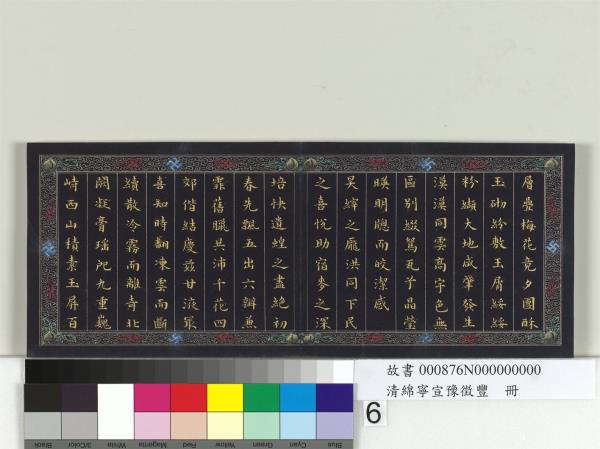 層疊梅花竟夕團酥
玉砌紛敷玉屑綏綏
粉纈大地咸肇發生
漠漠同雲高宇色無
區別綴鴛瓦予晶瑩
暎明聰而皎潔感
昊縡之龐洪同下民
之喜悅助宿麥之深
培快遺蝗之盡絶初
春先飄五出六瓣兼
霏舊臘共沛千花四
郊偕結慶茲甘液眾
喜知時翻凍雲而斷
續散冷霧而離奇北
闕凝膏瑤九重巍
峙西山積素玉屏百
故書 000876N000000000
清綿寧宣豫徵豐 冊
6
Black
3/Color
White
Magenta
Red
Yellow
Green
Cyan
Blue